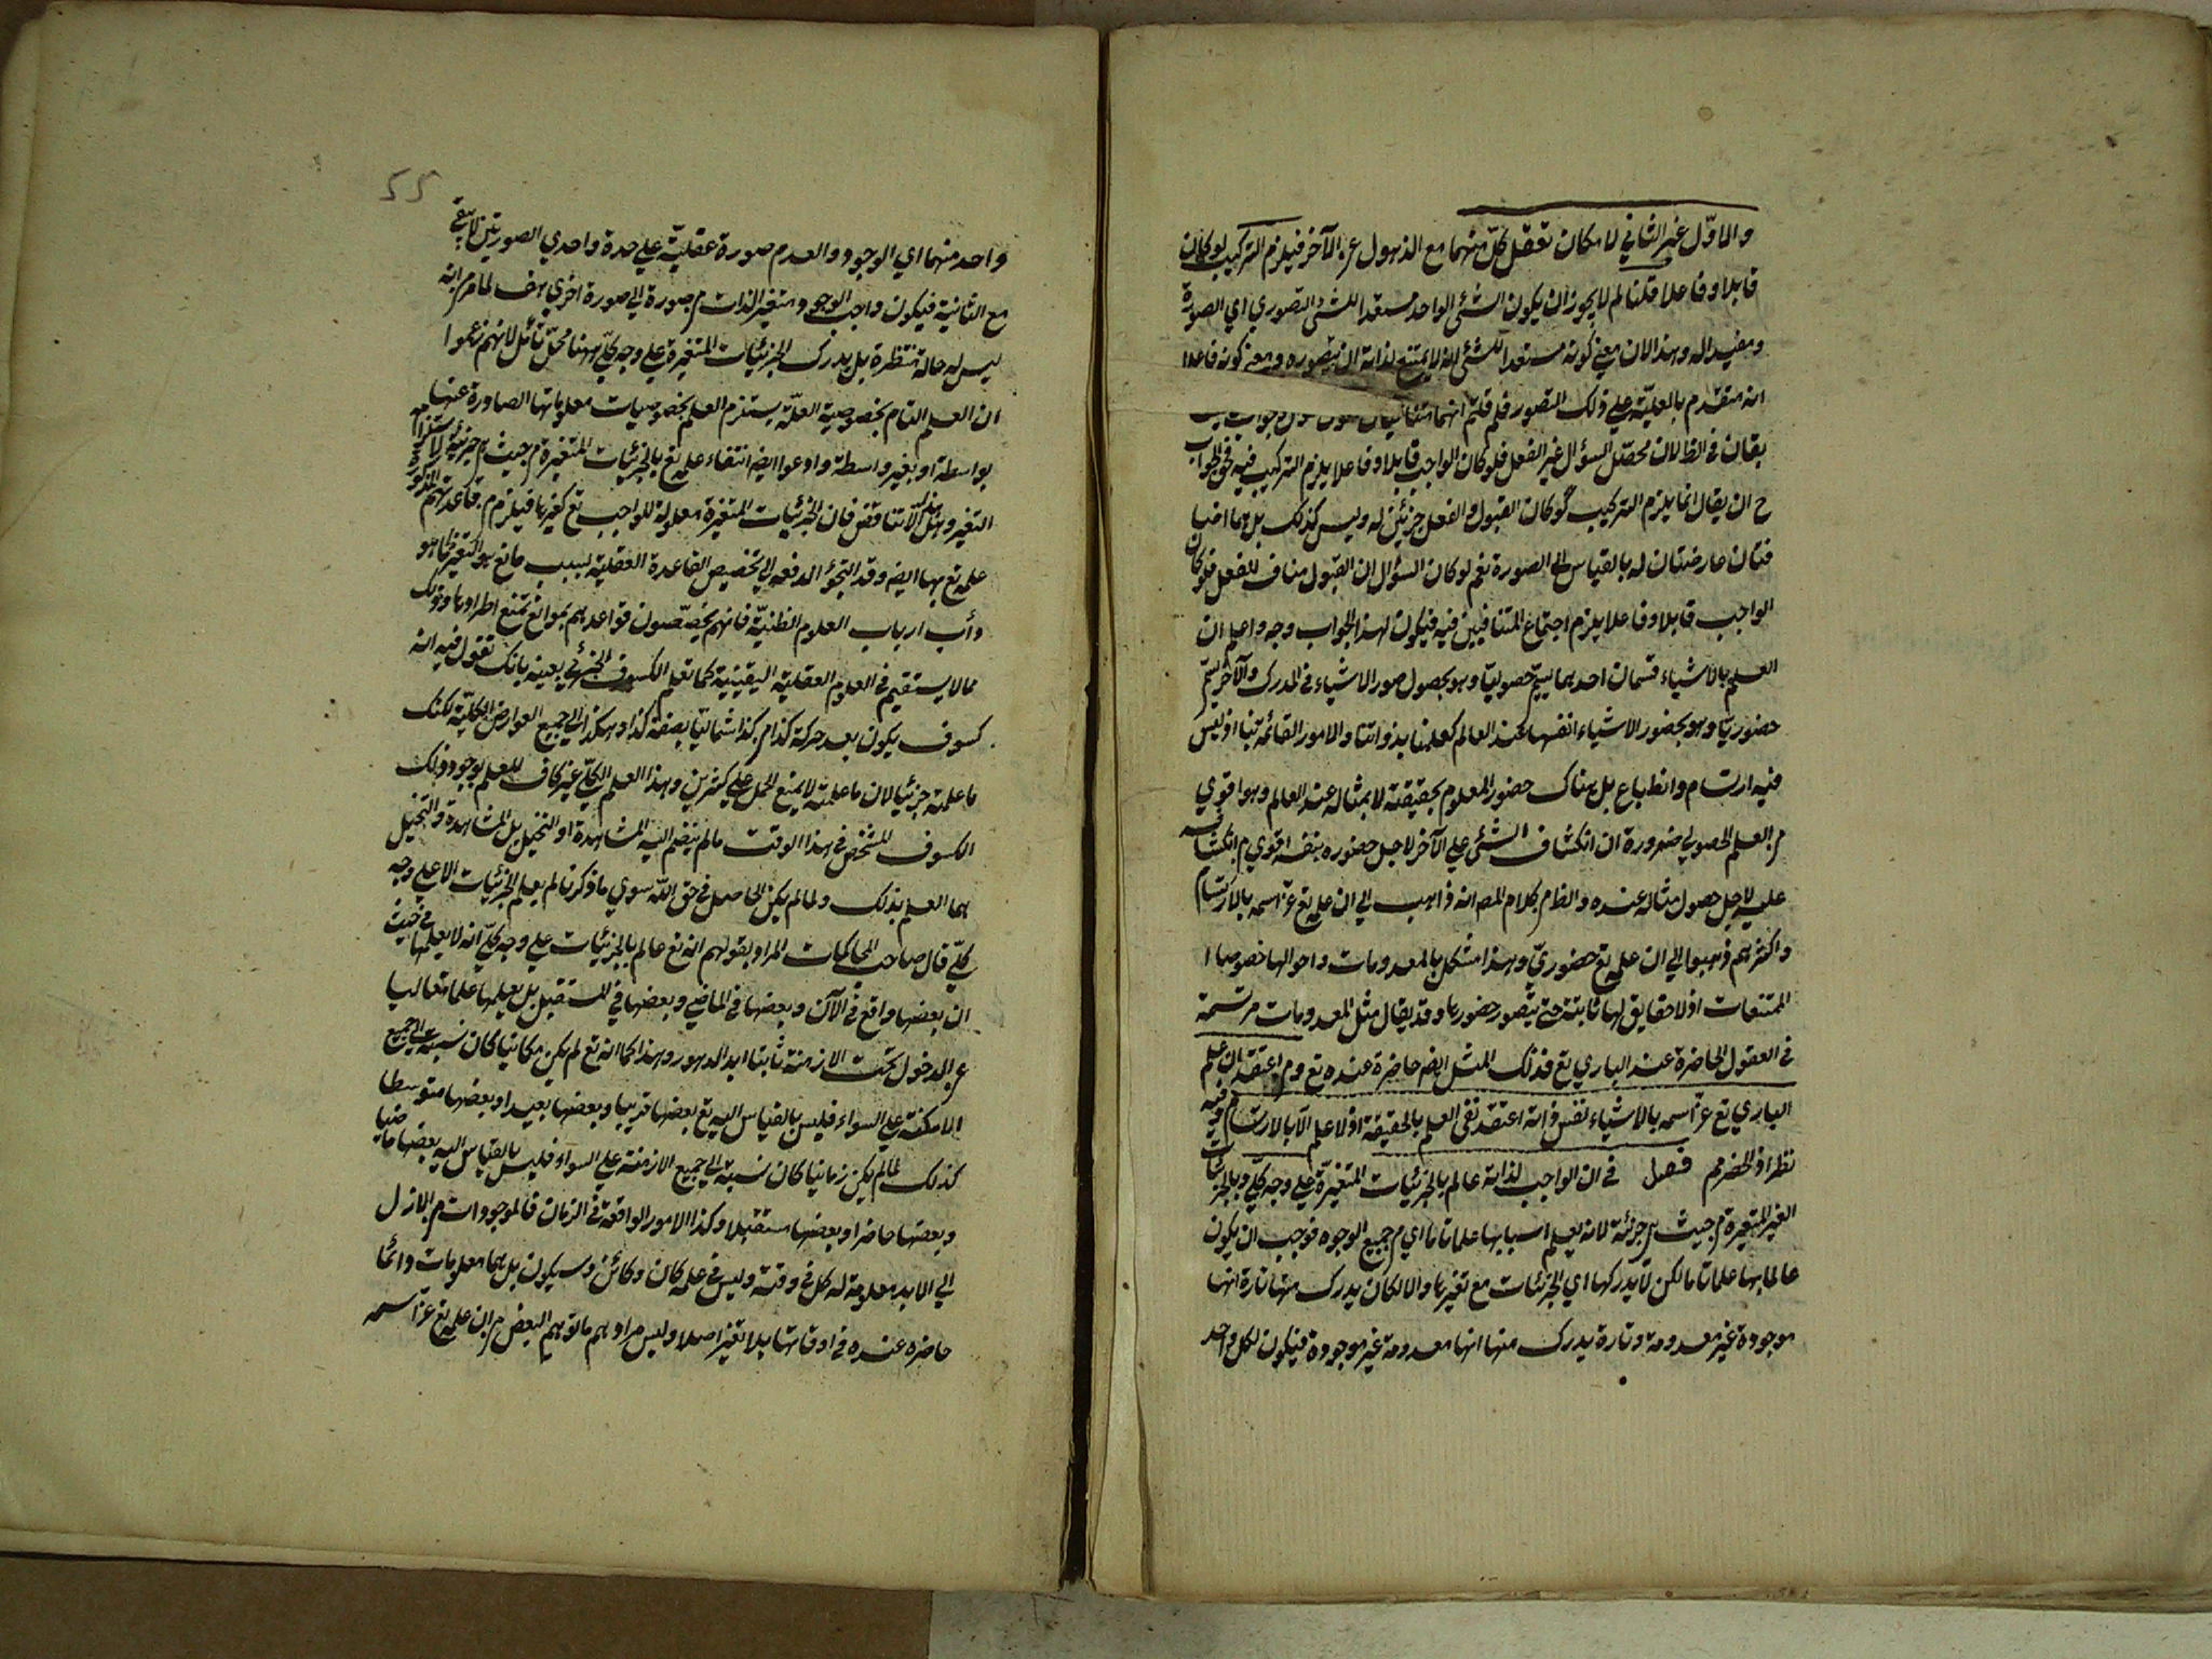 والاوّل غير الثاني لامكان تعقل كلّ منهما مع الذهول عن الآخر فيلزم التركيب لو كان
قابلا وفاعلا قلنا لم لا يجوز ان يكون الشئ الواحد مستعدا للشئ التصوري اي الصورة
ومفيدا له وهذا لان معنى كونه مستعدا للشئ انه لا يمتنع لذاته ان يتصوره ومعنى كونه فاعلا
انه متقدم بالعليّة على ذلك التصور فلم قلتم انهما متنافيان
يقال في الظ لان محصّل السؤال غير الفعل فلو كان الواجب قابلا وفاعلا يلزم التركيب فيه فحق الجواب
ح ان يقال انما يلزم التركيب لو كان القبول والفعل جزئين له وليس كذلك بل هما اضا
فتان عارضتان له بالقياس الى الصورة نعم لو كان السؤال ان القبول مناف للفعل فلو كان
الواجب قابلا وفاعلا يلزم اجتماع المتنافيين فيه فيكون لهذا الجواب وجه واعلم ان
العلم بالاشياء قسمان احدهما يسمّى حصوليّا وهو بحصول صور الاشياء في المدرك والآخر يسمّى
حضوريّا وهو بحضور الاشياء انفسها عند العالم كعلمنا بذواتنا والامور القائمة بنا اذ ليس
فيه ارتسام وانطباع بل هناك حضور المعلوم بحقيقته لا بمثاله عند العالم وهو اقوي
من العلم الحصولي ضرورة ان انكشاف الشئ على الآخر لاجل حضوره بنفسه اقوي من انكشافه
عليه لاجل حصول مثاله عنده والظ من كلام المصـ انه ذاهب الي ان علمه تع عزّ اسمه بالارتسام
واكثرهم ذهبوا الي ان علمه تع حضوريّ وهذا مشكل بالمعدومات واحوالها خصوصا ا
الممتنعات اذ لا حقايق لها ثابتة حتي يتصور حضورها وقد يقال مثل المعدومات مرتسمة
في العقول الحاضرة عند الباري تع فذلك المثل ايضـ حاضرة عنده تع ومن اعتقد ان علم
الباري تع عزّ اسمه بالاشياء نفس ذاته اعتقد نفي العلم بالحقيقة اذ لا علم الّا بالارتسام وفيه
نظر اذ الحضـ مم فصل في ان الواجب لذاته عالم بالجزئيات المتغيّرة على وجه كلّي وبالجزئيات
الغير المتغيرة من حيث هي جزئية لانه يعلم اسبابها علما تاما اي من جميع الوجوه فوجب ان يكون
عالما بها علما تاما لكن لا يدركها اي الجزئيات مع تغيرها والا لكان يدرك منها تارة انها
موجودة غير معدومة وتارة يدرك منها انها معدومة غير موجودة فيكون لكل واحد
55
واحد منهما اي الوجود والعدم صورة عقليّة على حدة واحدي الصورتين لا تبقى
مع الثانية فيكون واجب الوجود متغير الذات من صورة الي صورة اخري هف لما مر من انه
ليس له حالة منتظرة بل يدرك الجزئيات المتغيرة على وجه كلّي ههنا محلّ تأمّل لانهم زعموا
ان العلم التام بخصوصية العلّة يستلزم العلم بخصوصيات معلولاتها الصادرة عنها
بواسطة او بغير واسطة وادعوا ايضـ انتفاء علمه تع بالجزئيات المتغيرة من حيث هي جزئية لاستلزامه
التغير وهل هذا الّا تناقض فان الجزئيات المتغيرة معلولة للواجب تع كغيرها فيلزم من قاعدتهم المذكورة
علمه تع بها ايضـ وقد التجؤا لدفعه الي تخصيص القاعدة العقلية بسبب مانع هو التغير كما هو
دأب ارباب العلوم الظنيّة فانهم يخصّصون قواعدهم بموانع تمنع اطرادها وذلك
مما لا يستقيم في العلوم العقلية اليقينية كما تعلم الكسوف الجزئي بعينه بانك تقول فيه انه
كسوف يكون بعد حركة كذا من كذا شماليّا بصفة كذا وهكذا الي جميع العوارض الكلّية لكنك
ما علمته جزئيا لان ما علمته لا يمنع الحمل على كثيرين وهذا العلم الكلّي غير كاف للعلم بوجود ذلك
الكسوف المشخص في هذا الوقت ما لم ينضم اليه المشاهدة او التخيل بل المشاهدة والتخيل
هما العلم بذلك ولما لم يكن الحاصل في حق اللّه سوي ما ذكرنا لم يعلم الجزئيات الا على وجه
كلّي قال صاحب المحاكمات المراد بقولهم انه تع عالم بالجزئيات على وجه كلّي انه لا يعلمها من حيث
ان بعضها واقع في الآن وبعضها في الماضي وبعضها في المستقبل بل يعلمها علما متعاليا
عن الدخول تحت الازمنة ثابتا ابد الدهور وهذا كما انه تع لم يكن مكانيا كان نسبته الي جميع
الامكنة على السواء فليس بالقياس اليه تع بعضها قريبا وبعضها بعيدا وبعضها متوسطا
كذلك لما لم يكن زمانيا كان نسبته الي جميع الازمنة على السواء فليس بالقياس اليه بعضها ماضيا
وبعضها حاضرا وبعضها مستقبلا وكذا الامور الواقعة في الزمان فالموجودات من الازل
الي الابد معلومة له كل في وقته وليس في علمه كان وكائن وسيكون بل هما معلومات دائما
حاضرة عنده في اوقاتها بلا تغير اصلا وليس مرادهم ما توهم البعض من ان علمه تع عزّ اسمه